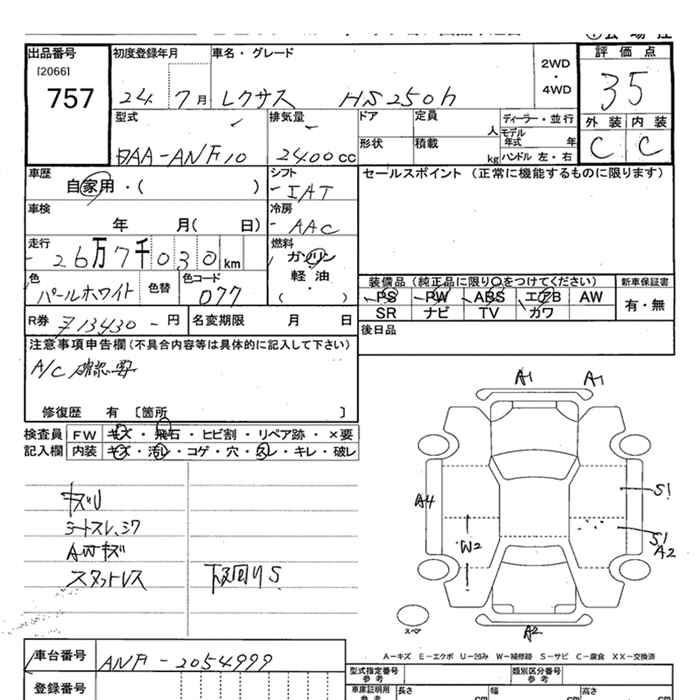 出品番号 初度登録年月 車名・グレード 2WD・4WD 評価点
[2066]
757 24年 7月 レクサス HS250h 35
型式 排気量 ドア 定員 人 ディーラー・並行 外装 内装
DAA-ANF10 2400cc 形状 積載 kg モデル年式 年 ハンドル 左・右 C C
車歴 シフト セールスポイント(正常に機能するものに限ります)
自家用・( ) IAT
車検 冷房
年 月( 日) AAC
走行 燃料
26万7千030km ガソリン
色 色替 色コード 軽油 装備品(純正品に限り○をつけてください) 新車保証書
パールホワイト 077 ( ・ ) PS PW ABS エアB AW 有・無
R券 ¥13430-円 名変期限 月 日 SR ナビ TV カワ
注意事項申告欄(不具合内容等は具体的に記入して下さい) 後日品
A/C 確認要
修復歴 有 [箇所 ]
検査員 FW キズ・飛石・ヒビ割・リペア跡・×要
記入欄 内装 キズ・汚レ・コゲ・穴・スレ・キレ・破レ
A1 A1
キズU
シートスレ、シワ
AWキズ
スタットレス 下回りS
A4 S1
W2 S1
A2
スペア A2
A-キズ E-エクボ U-凹み W-補修跡 S-サビ C-腐食 XX-交換済
車台番号 ANF10-2054999 型式指定番号 参考 類別区分番号 参考
登録番号 車庫証明用 参考 長さ cm 幅 cm 高さ cm